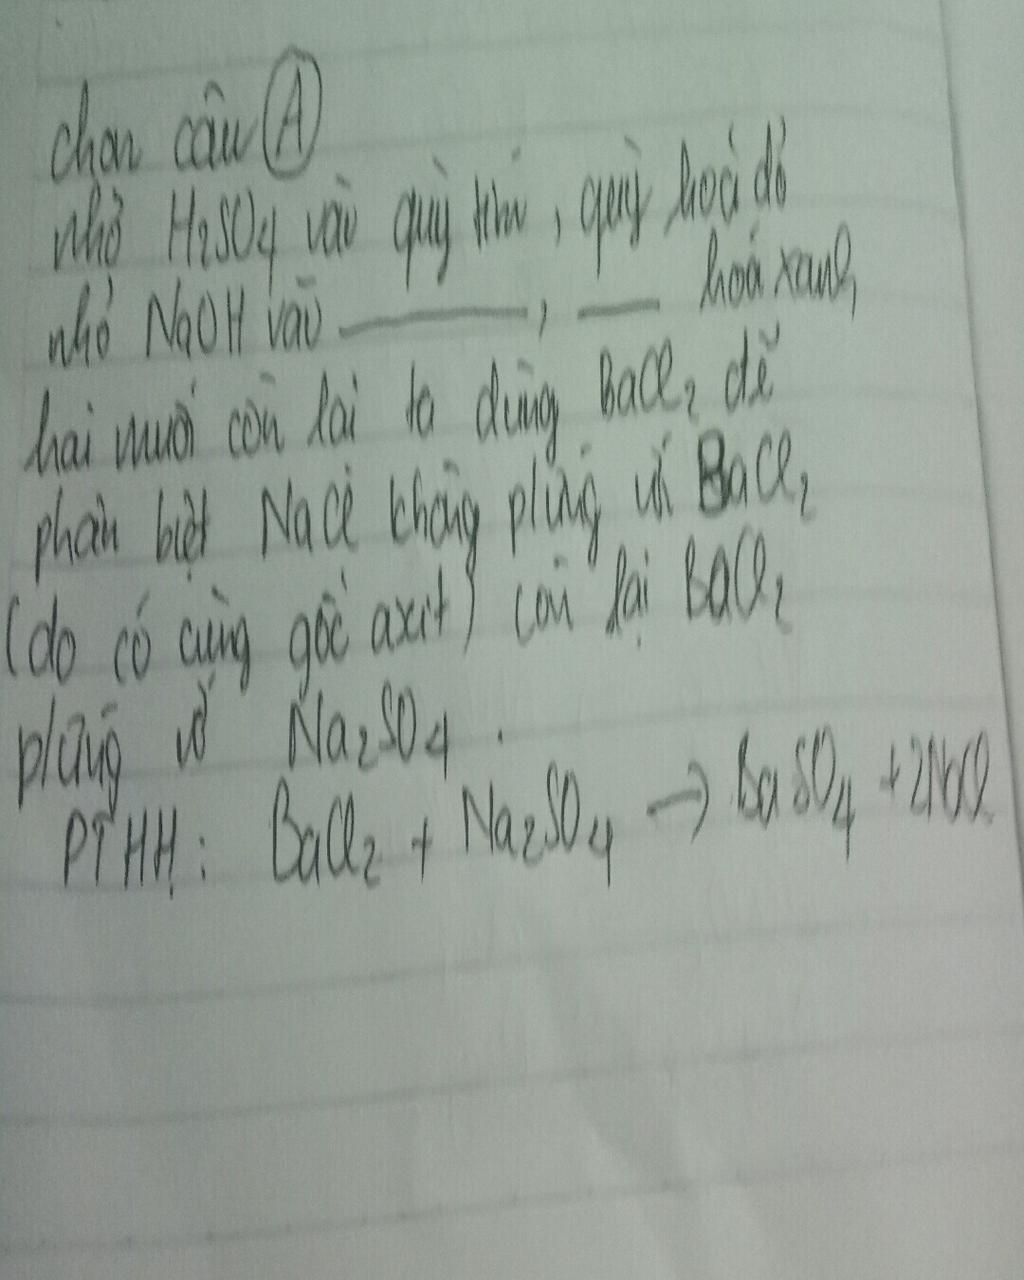 chọn câu A
nhỏ H2SO4 vào quỳ tím, quỳ hoá đỏ
nhỏ NaOH vào ———, — hoá xanh,
hai muối còn lại ta dùng BaCl2 để
phân biệt NaCl không pứng với BaCl2
(do có cùng gốc axit) còn lại BaCl2
pứng với Na2SO4.
PTHH: BaCl2 + Na2SO4 → BaSO4 + 2NaCl